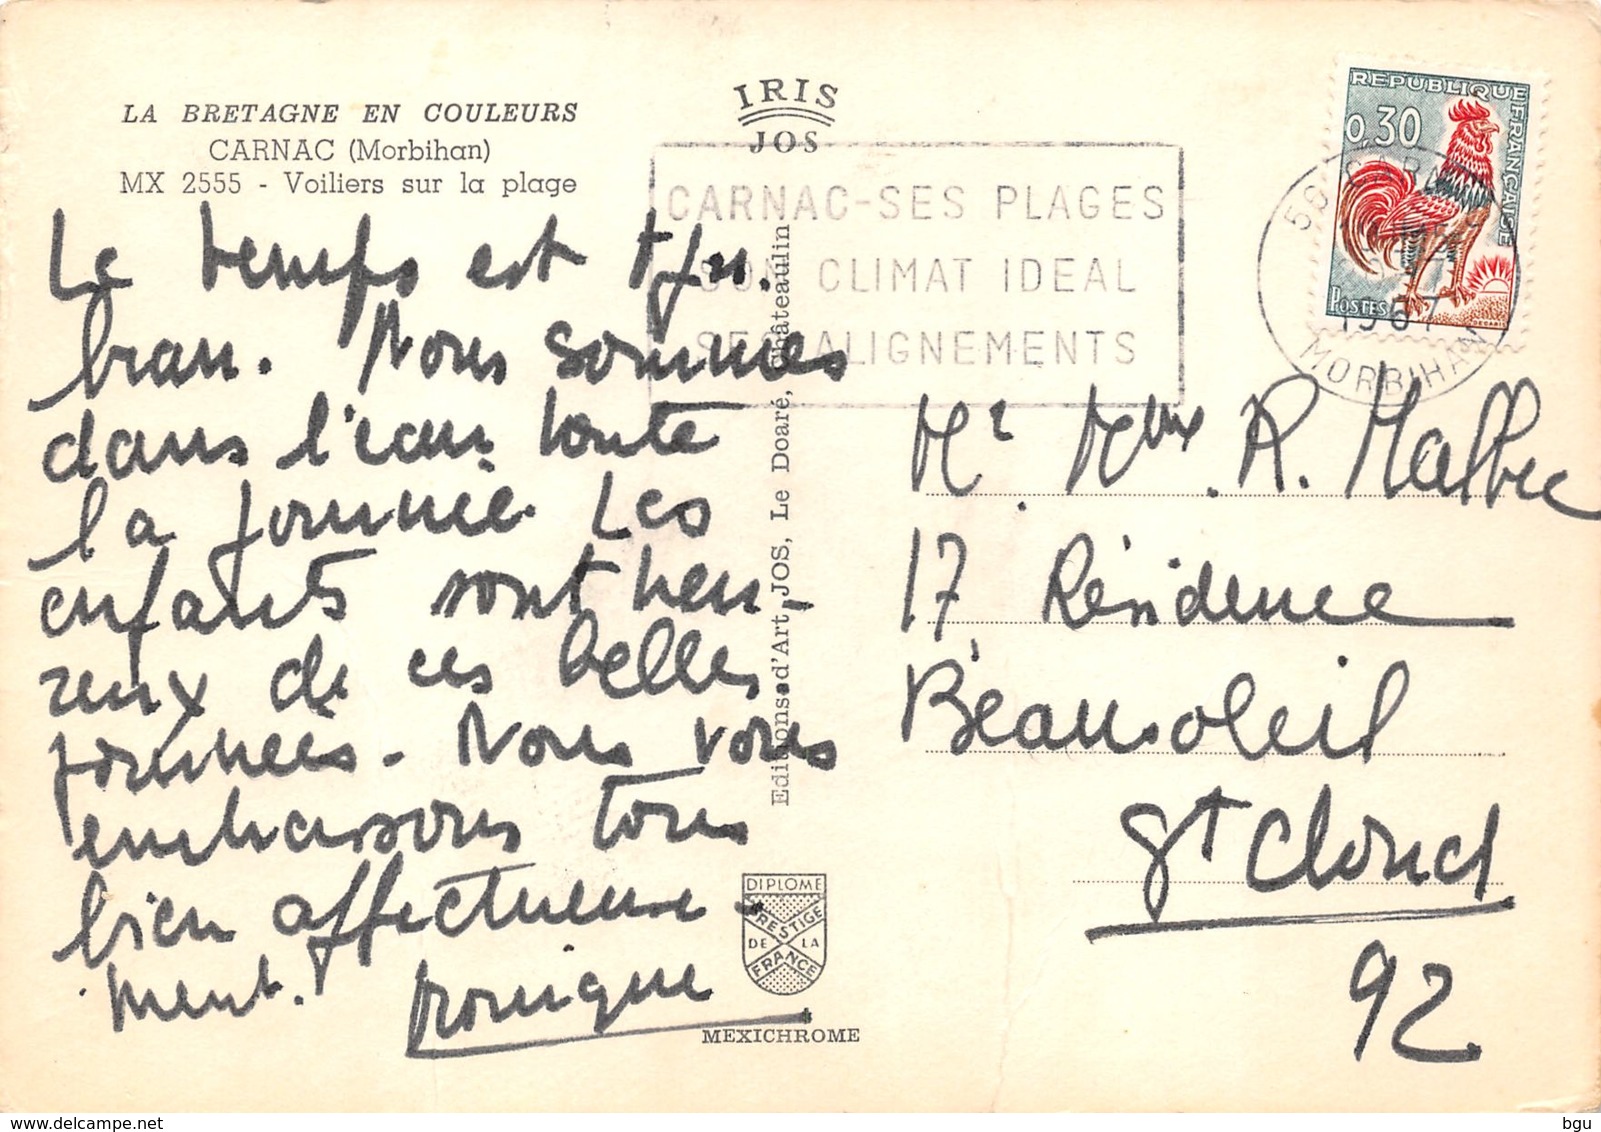 LA BRETAGNE EN COULEURS
CARNAC (Morbihan)
MX 2555 - Voiliers sur la plage
IRIS
JOS
CARNAC-SES PLAGES
SON CLIMAT IDEAL
SES ALIGNEMENTS
REPUBLIQUE FRANÇAISE
0,30
POSTES
DECARIS
1967
MORBIHAN
Le temps est
beau. Nous sommes
dans l'eau toute
la journée. Les
enfants sont heu-
reux de ces belles
journées. Nous vous
embrassons tous
bien affectueuse-
ment.
Editions d'Art JOS, Le Doaré, Châteaulin
DIPLOME
PRESTIGE
DE LA
FRANCE
MEXICHROME
Mr. Mme R. Malbec
17, Résidence
Beausoleil
St Cloud
92
bgu